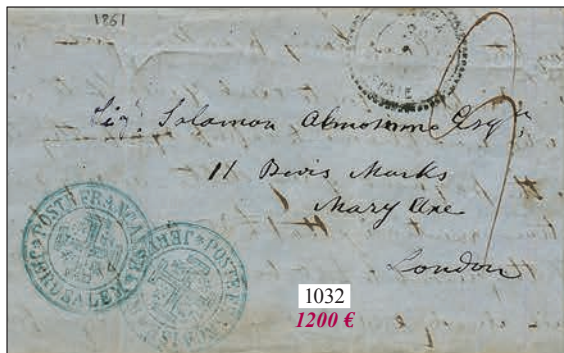 1861
SYRIE
Sigr. Solomon Almosnino Esqr,
11 Bevis Marks
Mary Axe
London
POSTE FRANÇAISE JERUSALEM
POSTE FRANÇAISE JERUSALEM
1032
1200 €